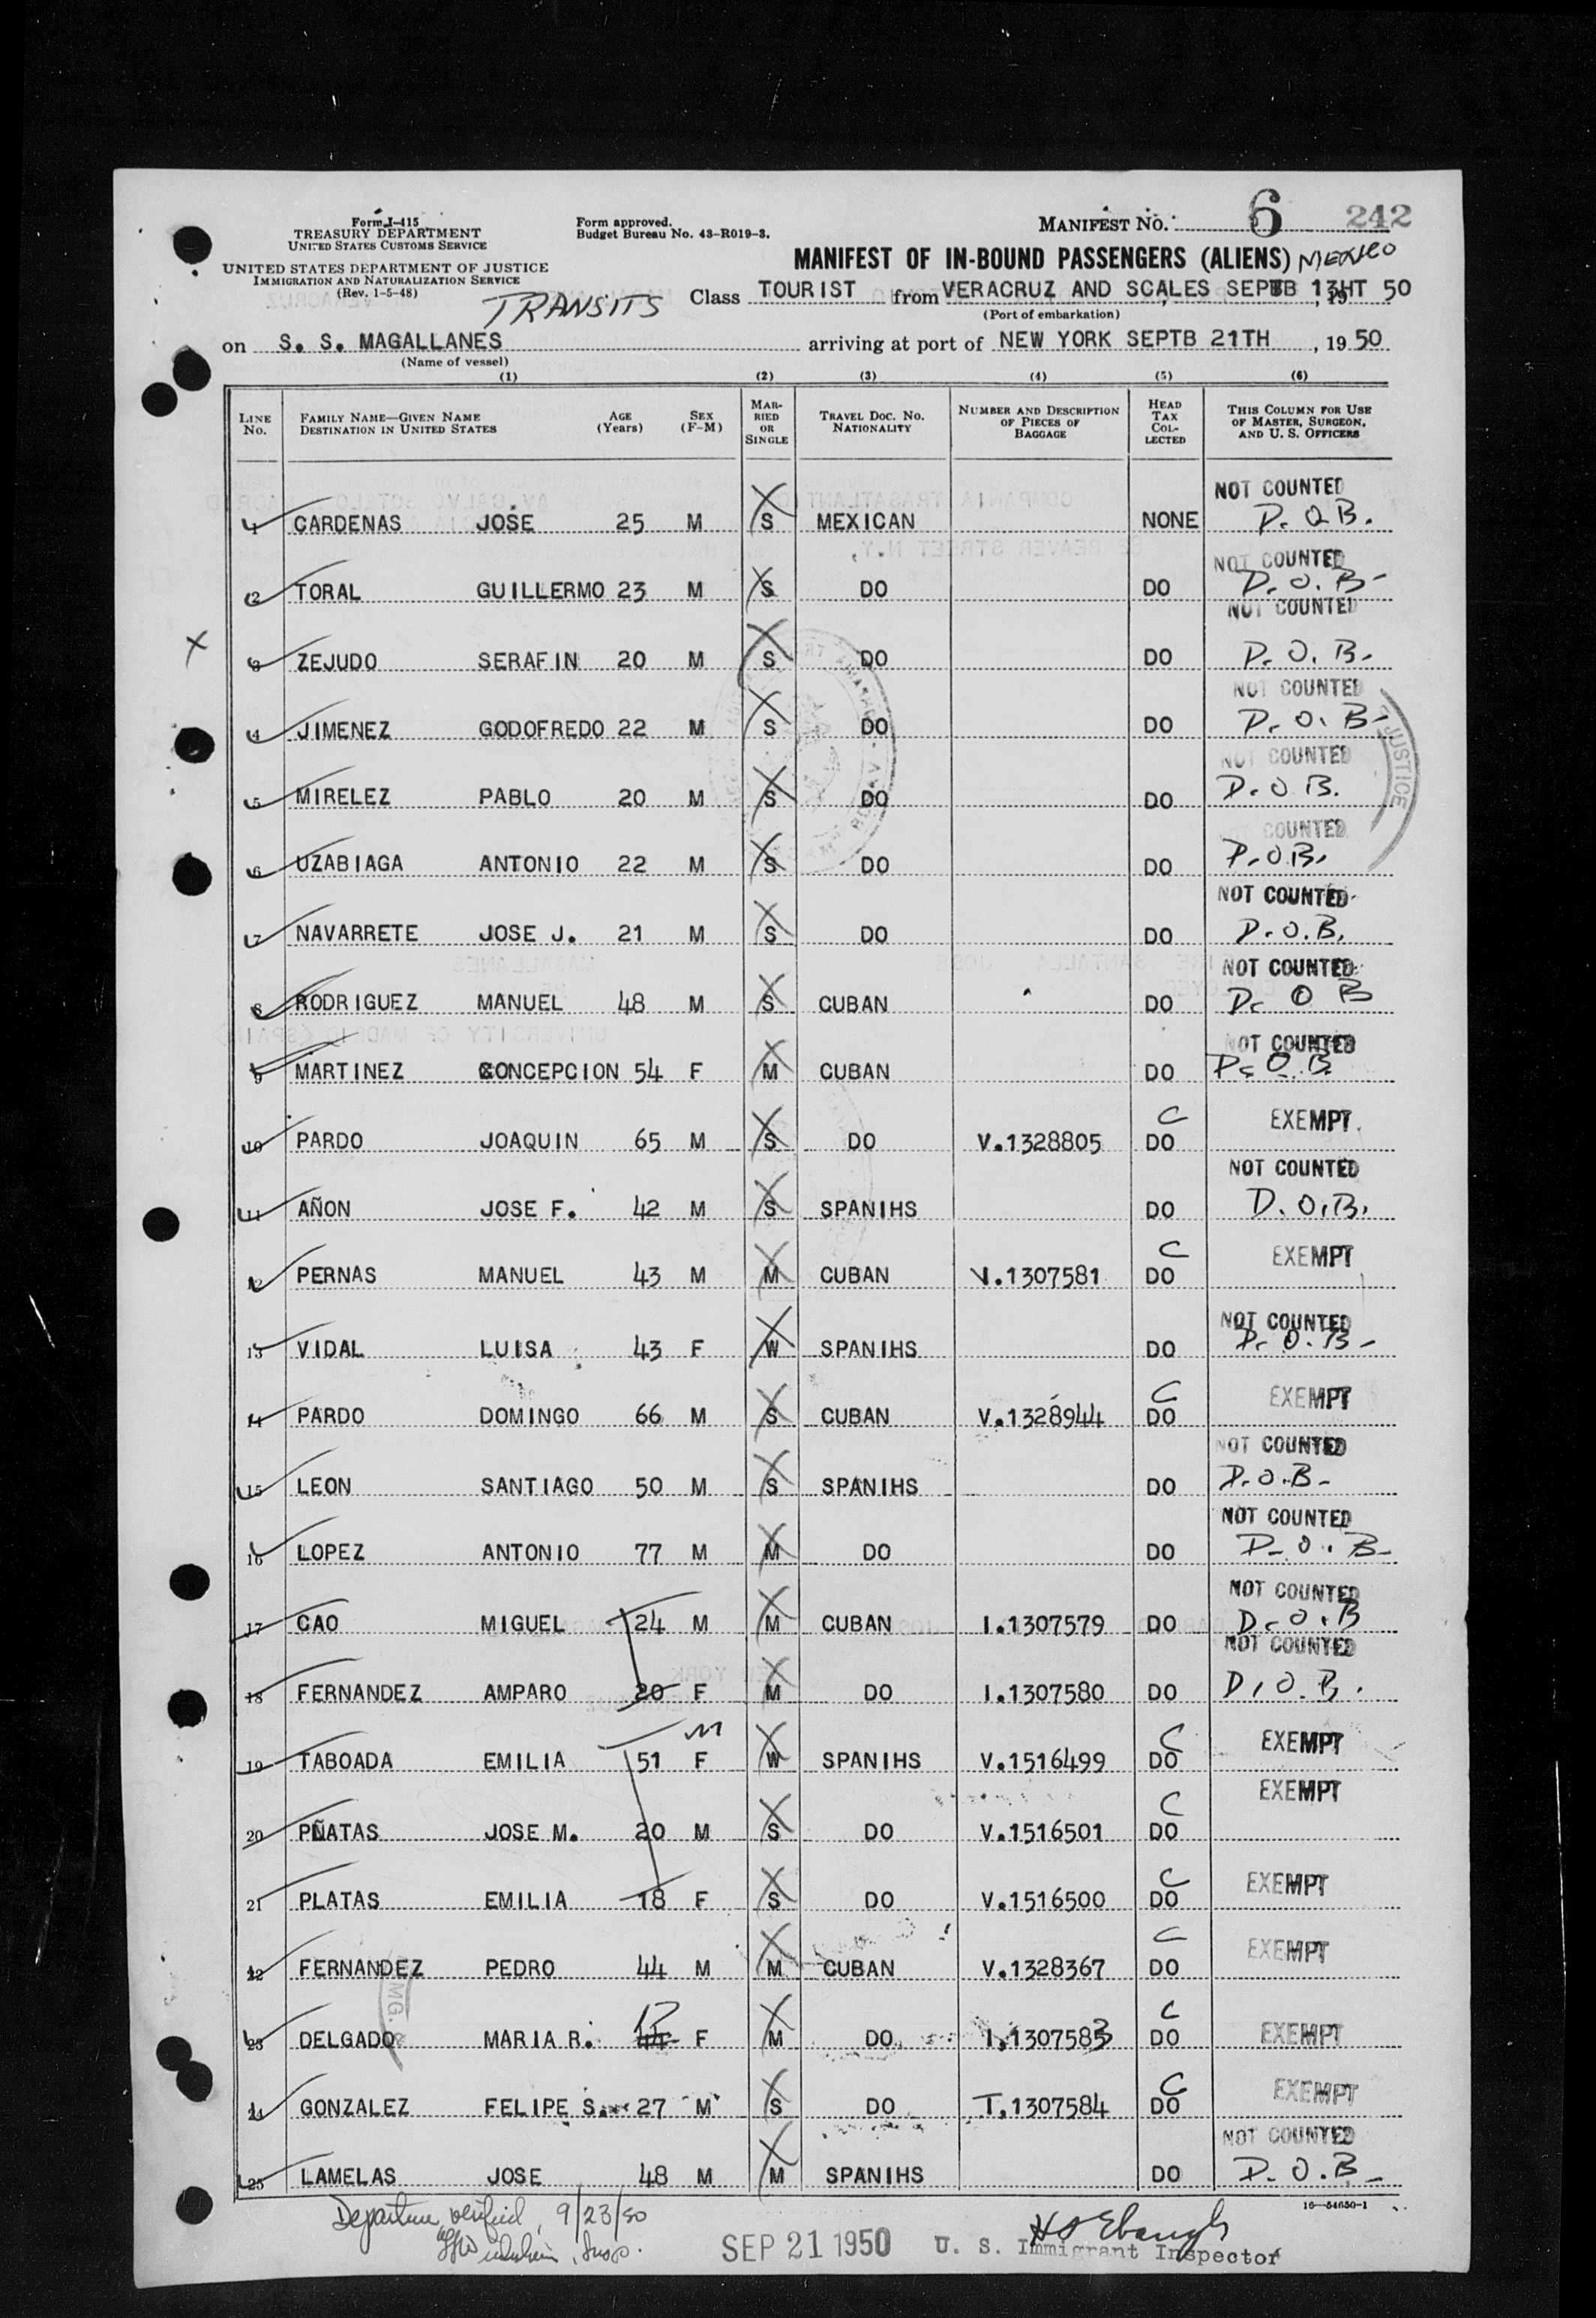 Form I-415
TREASURY DEPARTMENT
UNITED STATES CUSTOMS SERVICE
UNITED STATES DEPARTMENT OF JUSTICE
IMMIGRATION AND NATURALIZATION SERVICE
(Rev. 1-5-48)
Form approved.
Budget Bureau No. 43-R019-3.
MANIFEST No. 6 242
MANIFEST OF IN-BOUND PASSENGERS (ALIENS) MEXICO
TRANSITS Class TOURIST from VERACRUZ AND SCALES SEPTB 13HT 50
(Port of embarkation)
on S. S. MAGALLANES arriving at port of NEW YORK SEPTB 21TH , 19 50
(Name of vessel)
(1) (2) (3) (4) (5) (6)
LINE No. FAMILY NAME—GIVEN NAME DESTINATION IN UNITED STATES AGE (Years) SEX (F-M) MARRIED OR SINGLE TRAVEL DOC. NO. NATIONALITY NUMBER AND DESCRIPTION OF PIECES OF BAGGAGE HEAD TAX COLLECTED THIS COLUMN FOR USE OF MASTER, SURGEON, AND U. S. OFFICERS
NOT COUNTED
1 CARDENAS JOSE 25 M S MEXICAN NONE D. O B.
NOT COUNTED
2 TORAL GUILLERMO 23 M S DO DO D. O. B-
NOT COUNTED
X 3 ZEJUDO SERAFIN 20 M S DO DO D. O. B.
NOT COUNTED
4 JIMENEZ GODOFREDO 22 M S DO DO D. O. B-
JUSTICE
NOT COUNTED
5 MIRELEZ PABLO 20 M S DO DO D. O B.
COUNTED
6 UZABIAGA ANTONIO 22 M S DO DO D. O.B.
NOT COUNTED
7 NAVARRETE JOSE J. 21 M S DO DO D. O. B.
NOT COUNTED
8 RODRIGUEZ MANUEL 48 M S CUBAN DO D. O B
NOT COUNTED
9 MARTINEZ CONCEPCION 54 F M CUBAN DO D. O. B.
C EXEMPT
10 PARDO JOAQUIN 65 M S DO V.1328805 DO
NOT COUNTED
11 AÑON JOSE F. 42 M S SPANIHS DO D. O. B.
C EXEMPT
12 PERNAS MANUEL 43 M M CUBAN V.1307581 DO
NOT COUNTED
13 VIDAL LUISA 43 F W SPANIHS DO D. O. B-
C EXEMPT
14 PARDO DOMINGO 66 M S CUBAN V.1328944 DO
NOT COUNTED
15 LEON SANTIAGO 50 M S SPANIHS DO D. O. B-
NOT COUNTED
16 LOPEZ ANTONIO 77 M M DO DO D- O. B-
NOT COUNTED
17 CAO MIGUEL 24 M M CUBAN I.1307579 DO D. O. B
NOT COUNTED
18 FERNANDEZ AMPARO 20 F M DO I.1307580 DO D. O. B.
M C EXEMPT
19 TABOADA EMILIA 51 F W SPANIHS V.1516499 DO
C EXEMPT
20 PÑATAS JOSE M. 20 M S DO V.1516501 DO
C EXEMPT
21 PLATAS EMILIA 18 F S DO V.1516500 DO
C EXEMPT
22 FERNANDEZ PEDRO 44 M M CUBAN V.1328367 DO
12 C
23 DELGADO MARIA R. 44 F M DO I.1307583 DO EXEMPT
C EXEMPT
24 GONZALEZ FELIPE S. 27 M S DO T.1307584 DO
NOT COUNTED
25 LAMELAS JOSE 48 M M SPANIHS DO D. O. B-
16—54650-1
Departure verified, 9/23/50
Insp.
SEP 21 1950 U. S. Immigrant Inspector